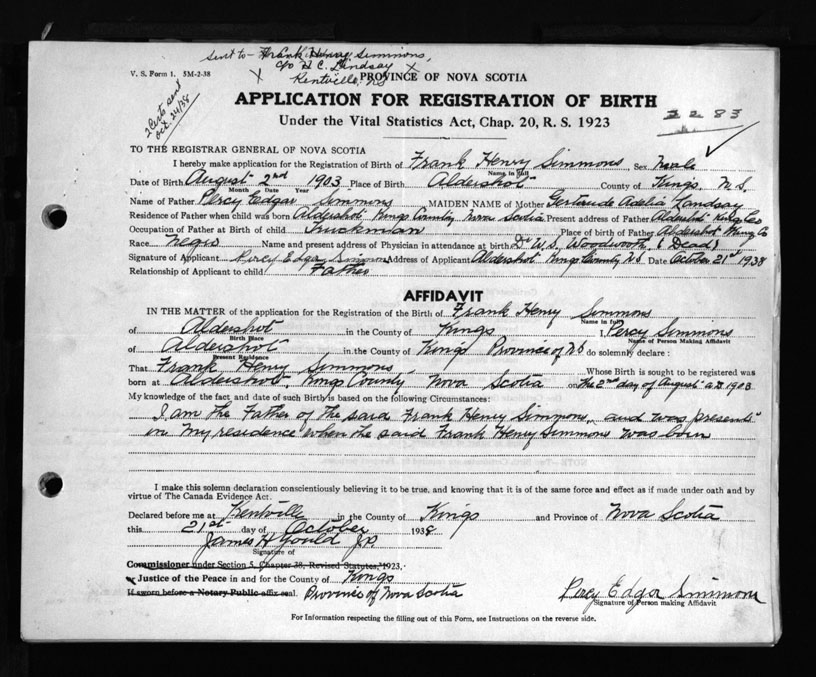 Sent to - Frank Henry Simmons,
c/o H C. Lindsay
Kentville. NS
V. S. Form 1. 5M-2-38
PROVINCE OF NOVA SCOTIA
2 Certs sent
Oct. 24/38
APPLICATION FOR REGISTRATION OF BIRTH
2283
Under the Vital Statistics Act, Chap. 20, R. S. 1923
TO THE REGISTRAR GENERAL OF NOVA SCOTIA
I hereby make application for the Registration of Birth of Frank Henry Simmons, Sex Male
Name in full
Date of Birth August 2nd 1903 Place of Birth Aldershot County of Kings. N S.
Month Date Year
Name of Father Percy Edgar Simmons MAIDEN NAME of Mother Gertrude Adelia Landsay
Residence of Father when child was born Aldershot Kings County Nova Scotia Present address of Father Aldershot Kings Co
Occupation of Father at Birth of child Truckman Place of birth of Father Aldershot Kings Co
Race Negro Name and present address of Physician in attendance at birth Dr W. S. Woodworth, (Dead)
Signature of Applicant Percy Edgar Simmons Address of Applicant Aldershot Kings County, NS Date October 21st 1938
Relationship of Applicant to child Father
AFFIDAVIT
IN THE MATTER of the application for the Registration of the Birth of Frank Henry Simmons
Name in full
of Aldershot in the County of Kings I, Percy Simmons
Birth Place Name of Person Making Affidavit
of Aldershot in the County of Kings Province of NS do solemnly declare :
Present Residence
That Frank Henry Simmons, Whose Birth is sought to be registered was
born at Aldershot, Kings County Nova Scotia on The 2nd day of August a.D 1903
My knowledge of the fact and date of such Birth is based on the following Circumstances:
I am the Father of the said Frank Henry Simmons, and was present
in my residence when the said Frank Henry Simmons was born
I make this solemn declaration conscientiously believing it to be true, and knowing that it is of the same force and effect as if made under oath and by
virtue of The Canada Evidence Act.
Declared before me at Kentville in the County of Kings and Province of Nova Scotia
this 21st day of October 1938
James H Gould J.P.
Signature of
Commissioner under Section 5, Chapter 38, Revised Statutes, 1923.
Justice of the Peace in and for the County of Kings
If sworn before a Notary Public affix seal. Province of Nova Scotia
Percy Edgar Simmons
Signature of Person making Affidavit
For Information respecting the filling out of this Form, see Instructions on the reverse side.